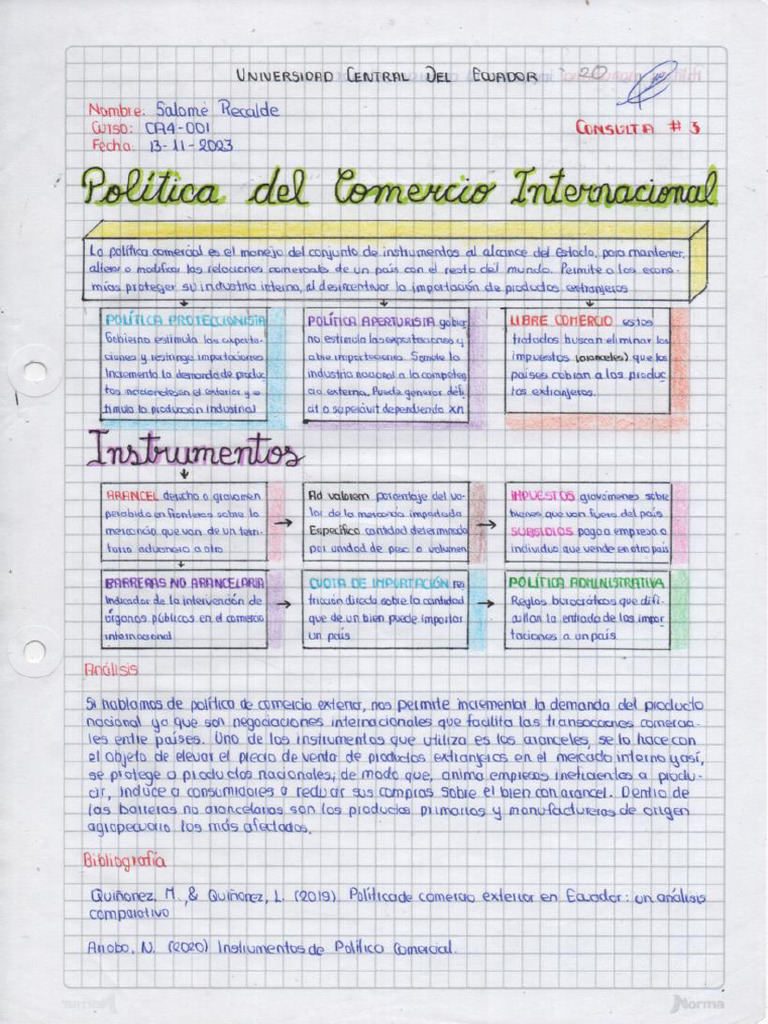 UNIVERSIDAD CENTRAL DEL ECUADOR 20
Nombre: Salomé Recalde
Curso: CA4-001
CONSULTA # 3
Fecha: 13-11-2023
Política del Comercio Internacional
La política comercial es el manejo del conjunto de instrumentos al alcance del Estado, para mantener,
alterar o modificar las relaciones comerciales de un país con el resto del mundo. Permite a las econo-
mías proteger su industria interna, al desincentivar la importación de productos extranjeros
POLÍTICA PROTECCIONISTA
Gobierno estimula las exporta-
ciones y restringe importaciones
Incrementa la demanda de produc
tos nacionales en el exterior y es
timula la producción industrial
POLÍTICA APERTURISTA gobier
no estimula las exportaciones y
abre importaciones. Somete la
industria nacional a la competen
cia externa. Puede generar défi
cit o superávit dependiendo XN
LIBRE COMERCIO estos
tratados buscan eliminar los
impuestos (aranceles) que los
países cobran a los produc
tos extranjeros.
Instrumentos
ARANCEL derecho o gravamen
percibido en fronteras sobre la
mercancía que van de un terri-
torio aduanero a otro
Ad valorem porcentaje del va-
lor de la mercancía importada
Específico cantidad determinada
por unidad de peso o volumen
IMPUESTOS gravámenes sobre
bienes que van fuera del país
SUBSIDIOS pago a empresa o
individuo que vende en otro país
BARRERAS NO ARANCELARIA
Indicador de la intervención de
órganos públicos en el comercio
internacional
CUOTA DE IMPORTACIÓN res
tricción directa sobre la cantidad
que de un bien puede importar
un país
POLÍTICA ADMINISTRATIVA
Reglas burocráticas que difi-
cultan la entrada de las impor
taciones a un país
Análisis
Si hablamos de política de comercio exterior, nos permite incrementar la demanda del producto
nacional ya que son negociaciones internacionales que facilita las transacciones comercia-
les entre países. Uno de los instrumentos que utiliza es los aranceles, se lo hace con
el objeto de elevar el precio de venta de productos extranjeros en el mercado interno y así,
se protege a productos nacionales; de modo que, anima empresas ineficientes a produ-
cir, induce a consumidores a reducir sus compras sobre el bien con arancel. Dentro de
las barreras no arancelarias son los productos primarios y manufactureros de origen
agropecuario los más afectados.
Bibliografía
Quiñonez, M., & Quiñonez, L. (2019). Política de comercio exterior en Ecuador: un análisis
comparativo
Arrobo, N. (2020) Instrumentos de Política Comercial.
Norma